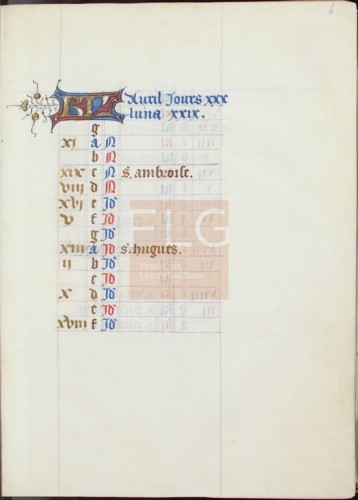 6
KL Auril Jours xxx
luna xxix.
g
xi a N
b N
xix c N s. ambroise.
viii d N
xvi e Id
v f Id
g Id
xiii a Id s. hugues.
ii b Id
c Id
x d Id
e Id
xviii f Id
FLG